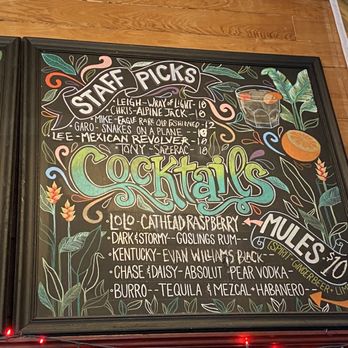 STAFF PICKS
LEIGH - WRAY OF LIGHT - 10
CHRIS - ALPINE JACK - 10
MIKE - EAGLE RARE OLD FASHIONED - 12
GARO - SNAKES ON A PLANE - 10
LEE - MEXICAN REVOLVER - 10
TONY - SAZERAC - 10
Cocktails
MULES $10
(SPIRIT + GINGERBEER + LIME
• LOLO - CATHEAD RASPBERRY
• DARK & STORMY - GOSLINGS RUM
• KENTUCKY - EVAN WILLIAMS BLACK
• CHASE & DAISY - ABSOLUT PEAR VODKA
• BURRO - TEQUILA & MEZCAL + HABANERO